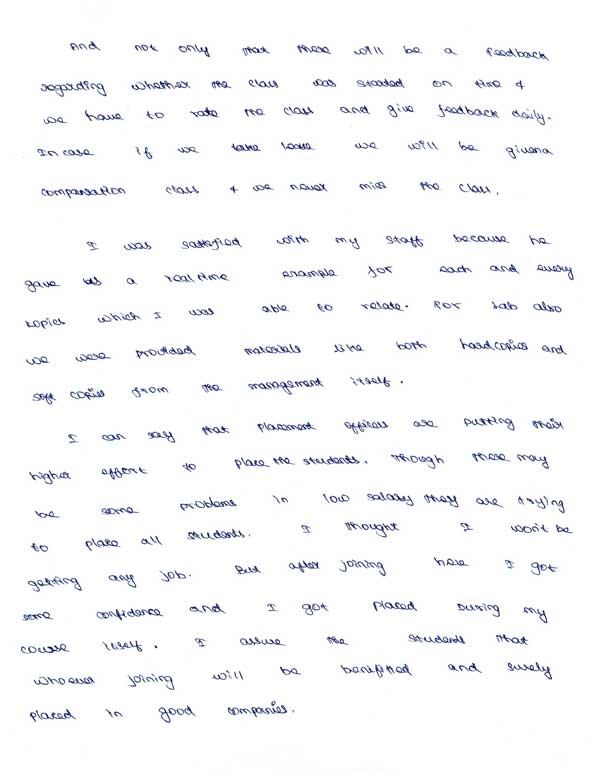 And not only that there will be a feedback
regarding whether the class was started on time &
we have to rate the class and give feedback daily.
Incase if we take leave we will be givena
compensation class & we never miss the class.
I was satisfied with my staff because he
gave us a real time example for each and every
topics which I was able to relate. For lab also
we were provided materials like both hardcopies and
soft copies from the management itself.
I can say that placement officers are putting their
higher effort to place the students. Though there may
be some problems in low salary they are trying
to place all students. I thought I won't be
getting any job. But after joining here I got
some confidence and I got placed during my
course itself. I assure the students that
whoever joining will be benifitted and surely
placed in good companies.